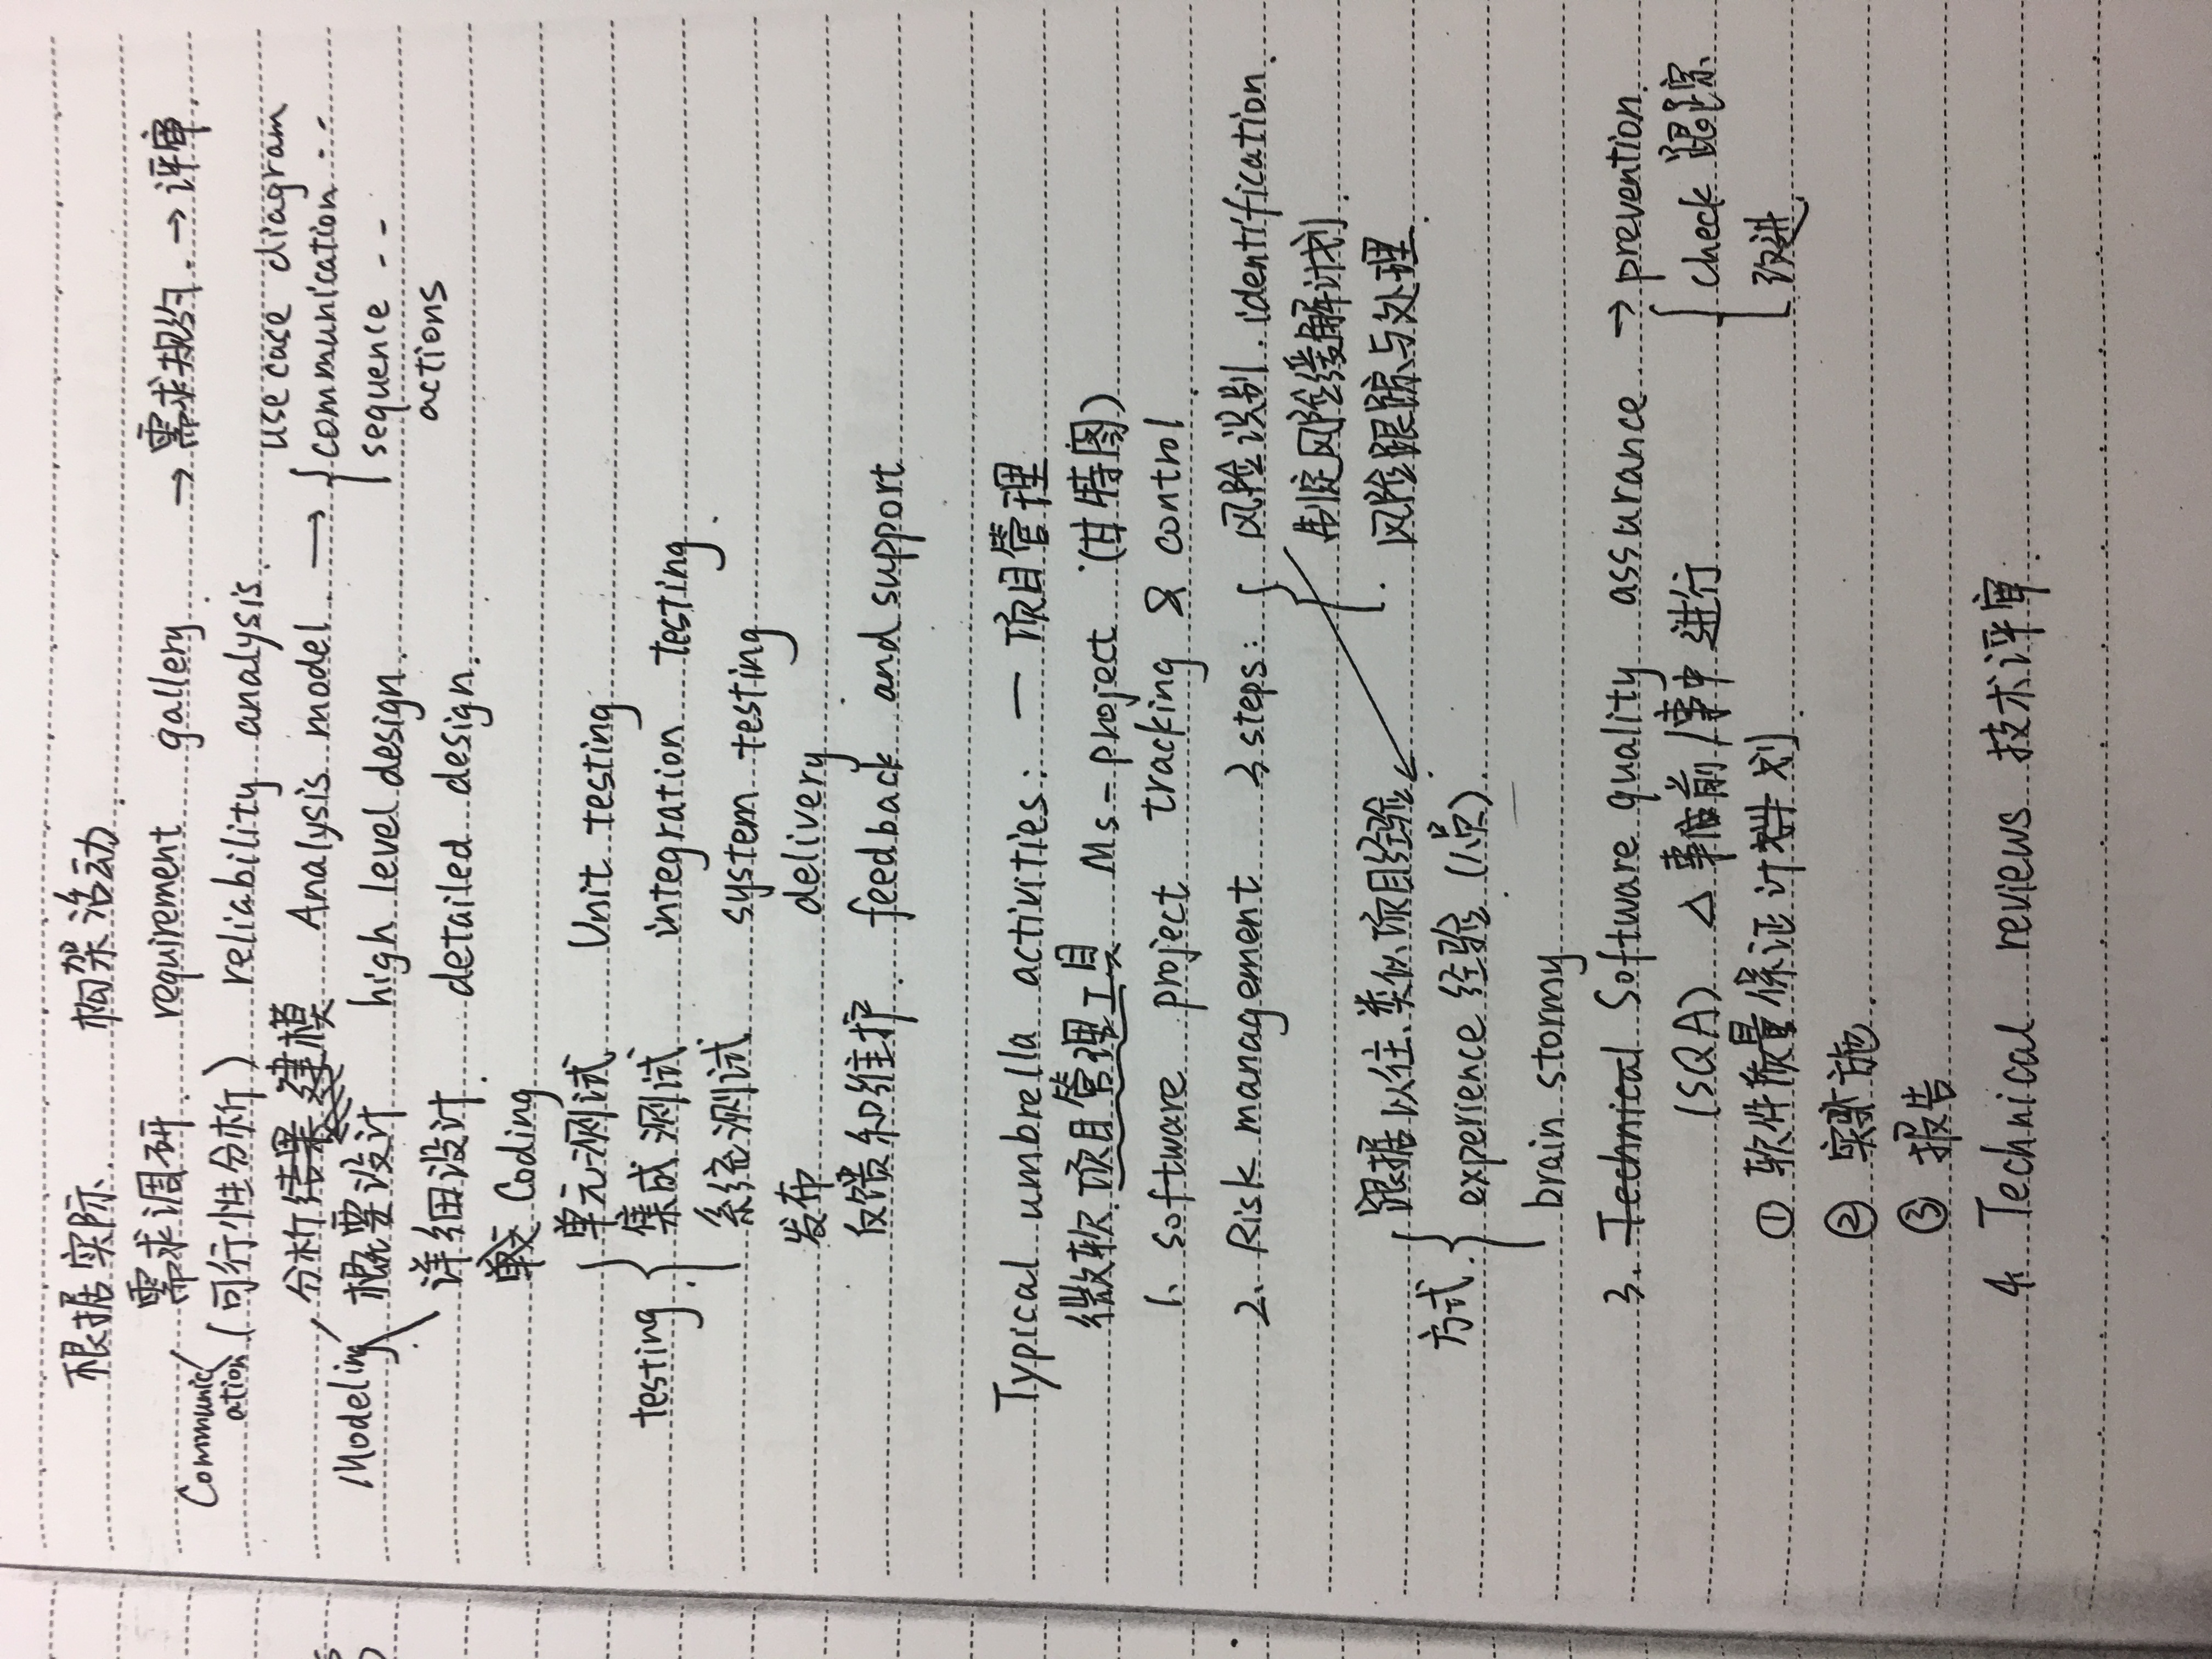 根据实际. 构架活动.
需求调研. requirement gallery. → 需求规约. → 评审.
Communication (可行性分析) reliability analysis.
分析建模 Analysis model. → { use case diagram
communication --
Modeling 概要设计 high level design.
sequence --
actions
详细设计. detailed design.
Coding
单元测试 Unit testing
testing. { 集成测试 integration testing.
系统测试 system testing
发布 delivery.
反馈和维护. feedback and support
Typical umbrella activities: 一 项目管理
微软.项目管理工具 Ms-project (甘特图)
1. software project tracking & control.
2. Risk management 3 steps: { 风险识别. identification.
制定风险缓解计划.
风险跟踪与处理.
跟据以往、类似项目经验.
方式. { experience 经验 (人员).
brain stormy
3. Software quality assurance → prevention.
(SQA) △ 事前/事中进行. { check 跟踪
① 软件质量保证计划. 改进.
② 实施.
③ 报告
4. Technical reviews 技术评审.